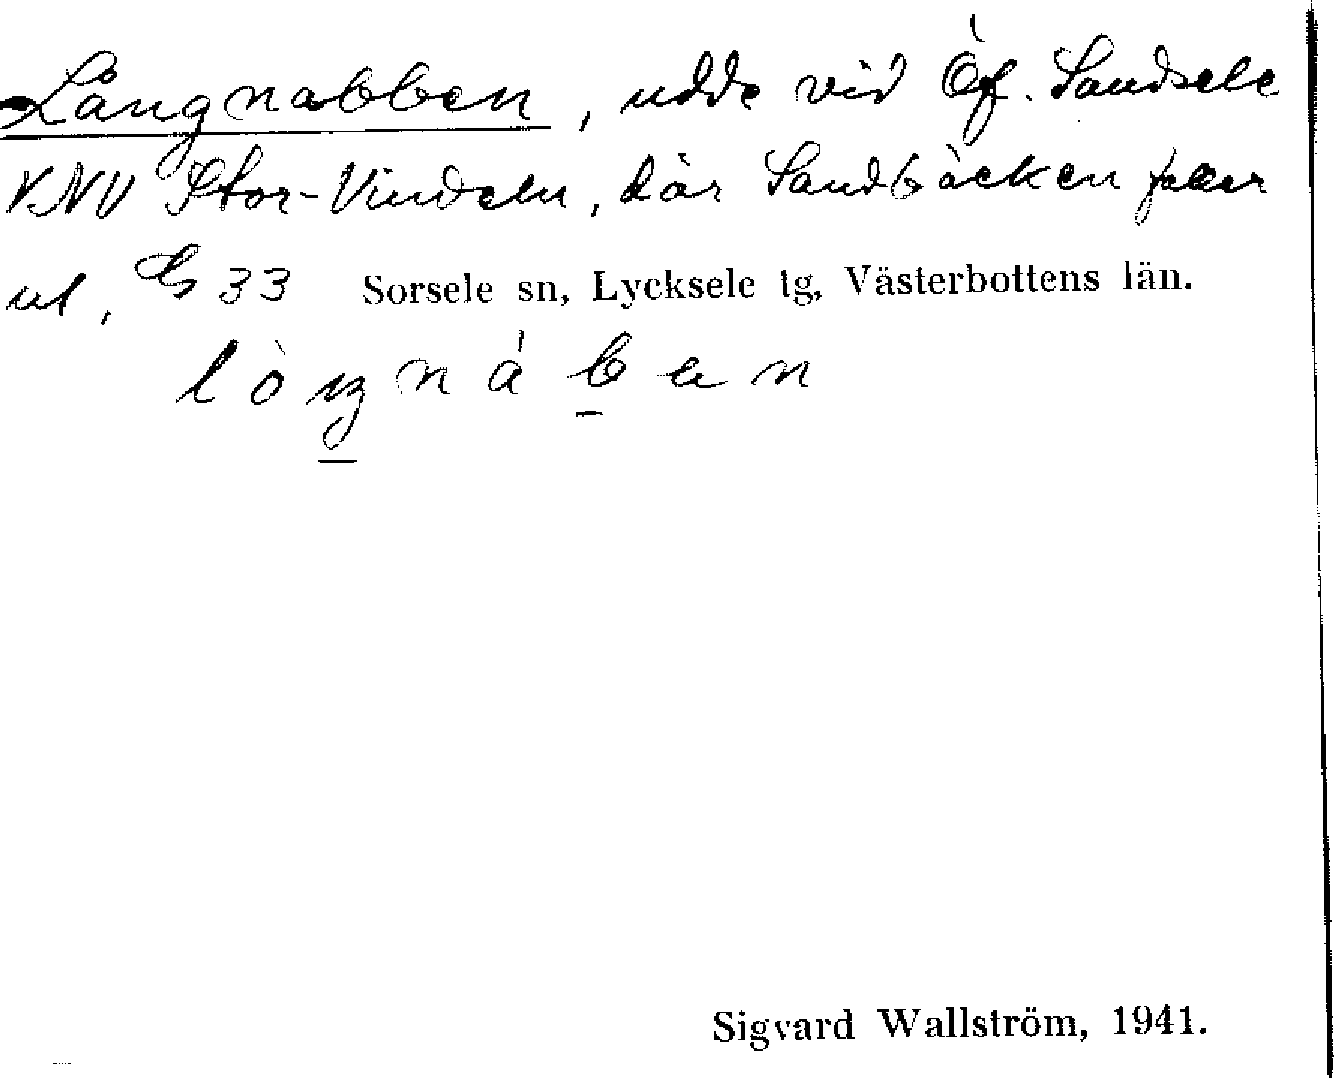 Långnabben, udde vid Öf. Sandsele
VNV Stor-Vindeln, där Sandbäcken faller
ut, G 33 Sorsele sn, Lycksele tg, Västerbottens län.
lòŋnában
Sigvard Wallström, 1941.